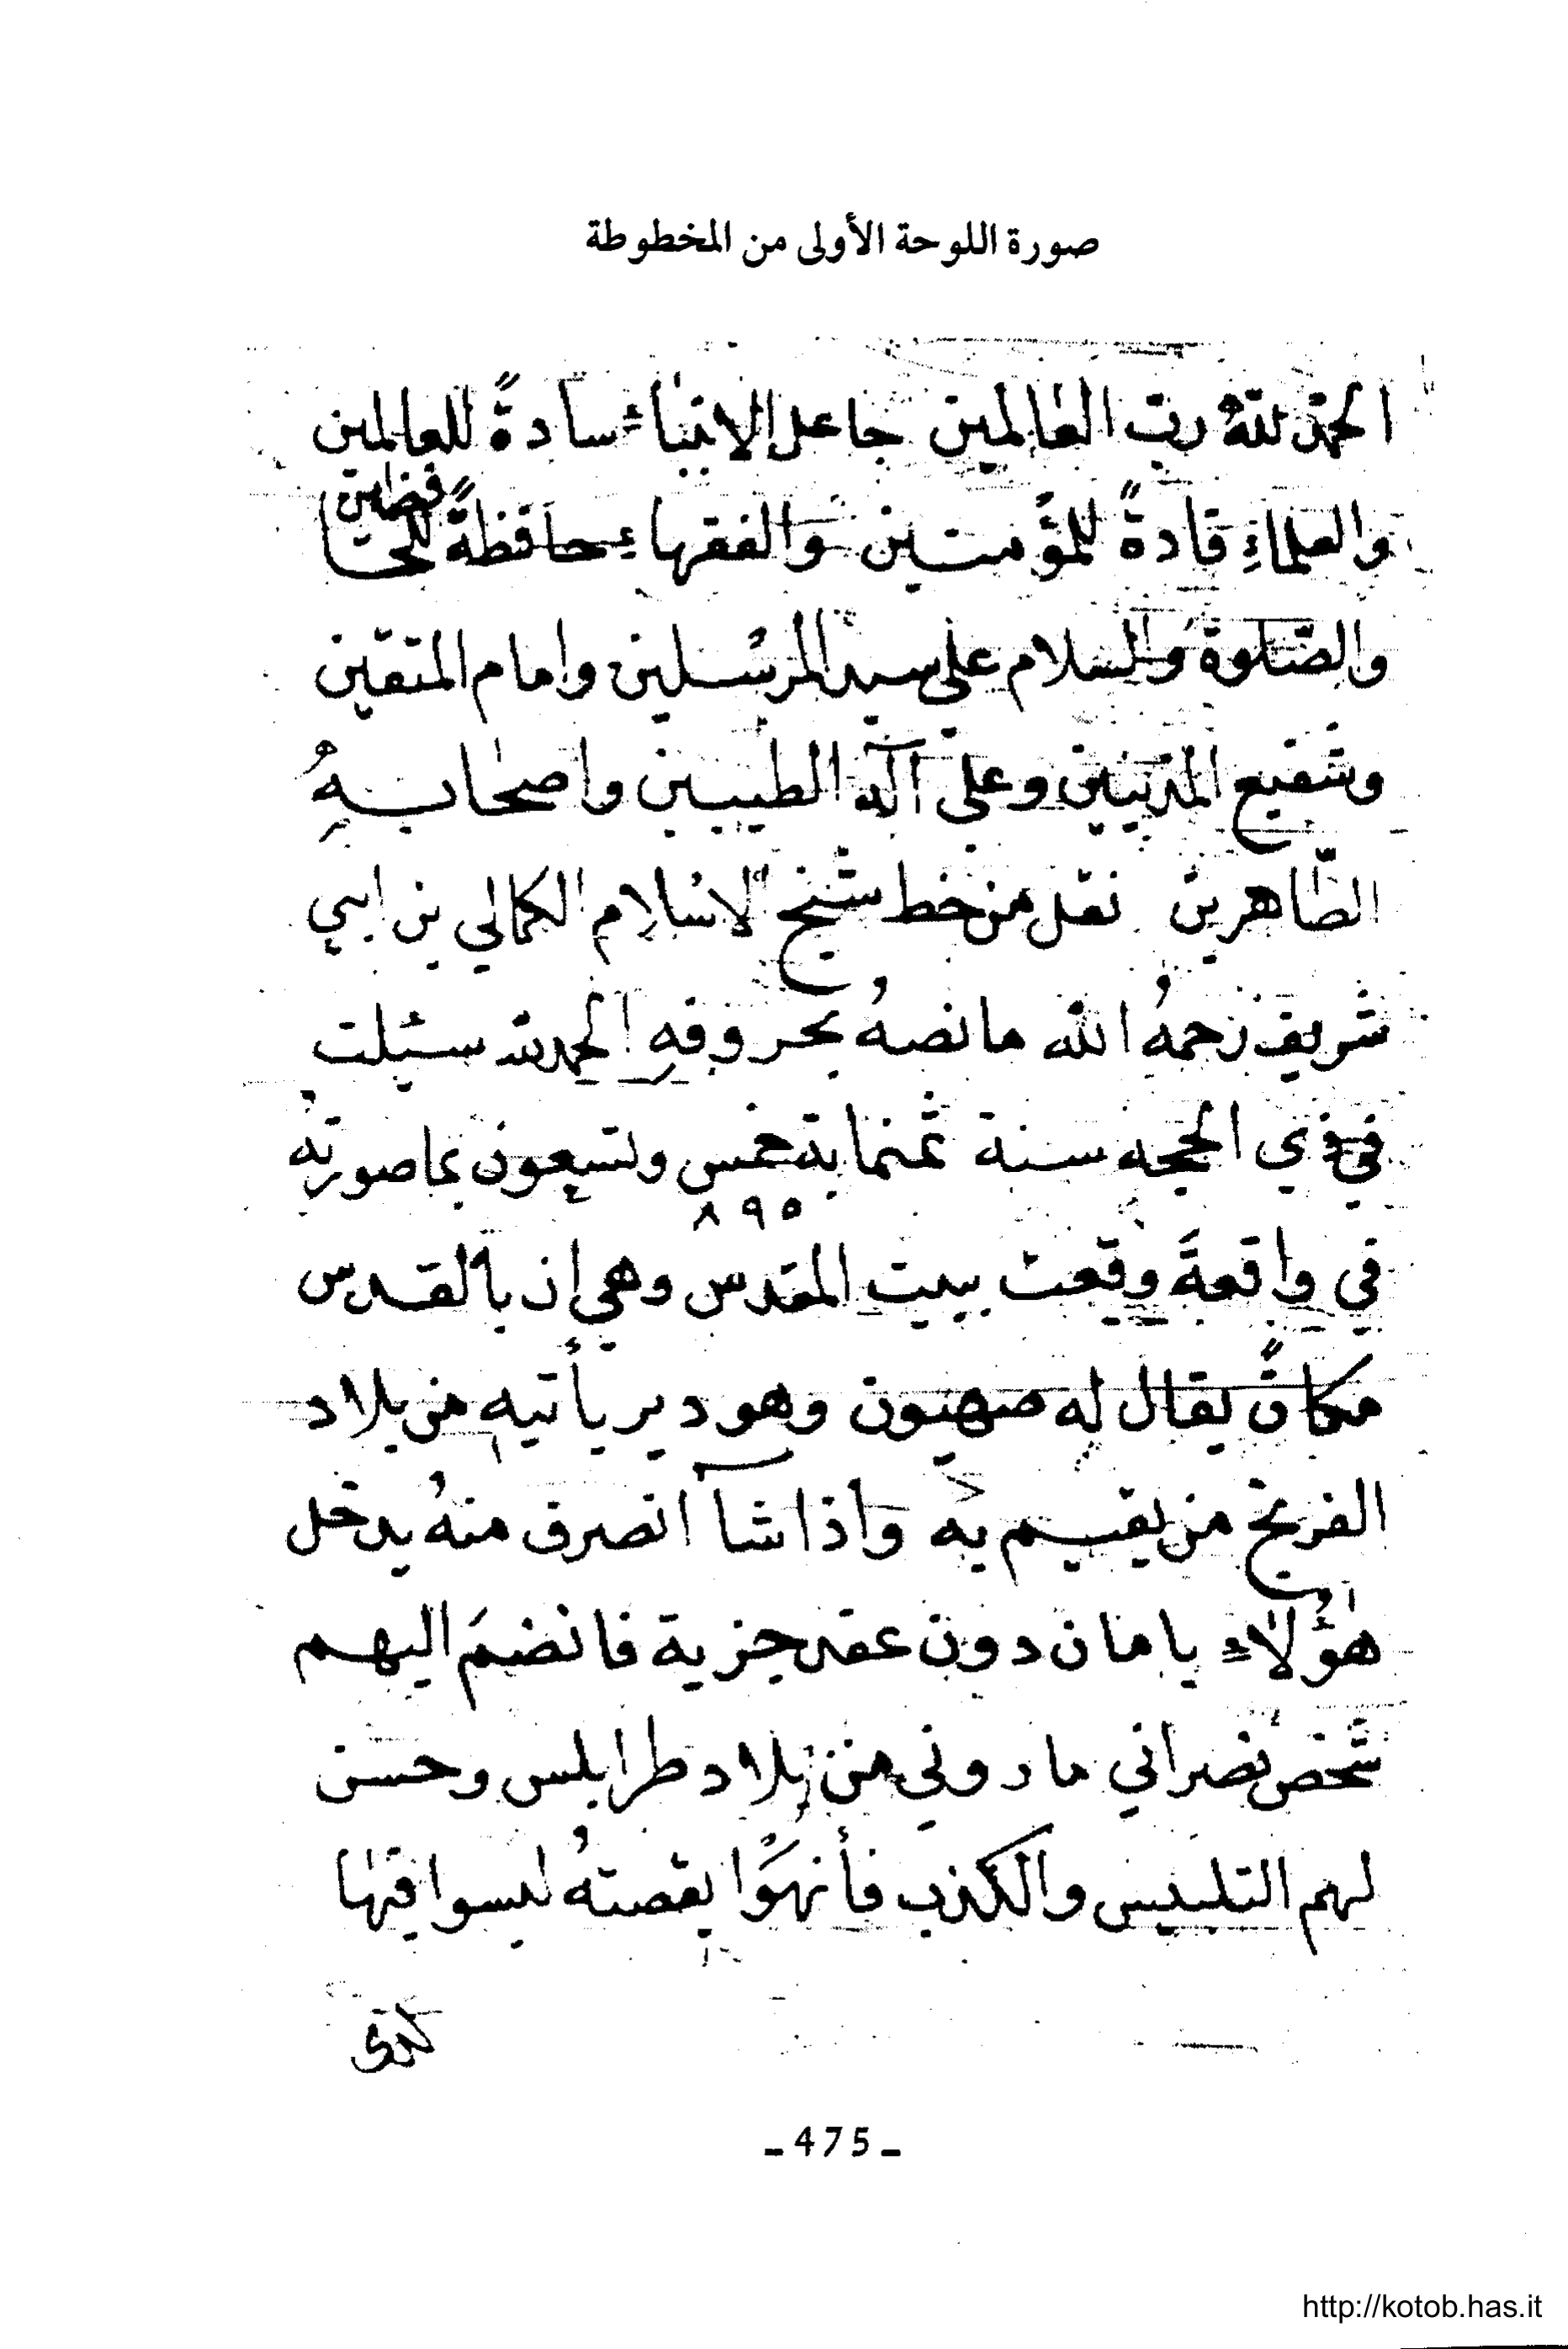 صورة اللوحة الأولى من المخطوطة
الحمد لله رب العالمين جاعل الانبياء سادةً للعالمين
والعلماء قادةً للمؤمنين والفقهاء حافظةً
والصلوة والسلام على سيد المرسلين وامام المتقين
وشفيع المذنبين وعلى آله الطيبين واصحابه
الطاهرين نقل من خط شيخ الاسلام الكمالي بن ابي
شريف رحمهُ الله ما نصهُ بحروفه الحمد لله سئلت
في ذي الحجه سنة ثمنماية خمس وتسعون بما صورته
٨٩٥
في واقعة وقعت ببيت المقدس وهي ان بالقدس
مكانً يقال له صهيون وهو دير يأتيه من بلاد
الفرنج من يقيم به واذا شآ انصرف منهُ يدخل
هؤلاء بامان دون عقد جزية فانضمَ اليهم
شخص نصراني ماروني من بلاد طرابلس وحسن
لهم التلبيس والكذب فأنهَوا بقصتهُ ليسوا فيها
- 475 -
http://kotob.has.it